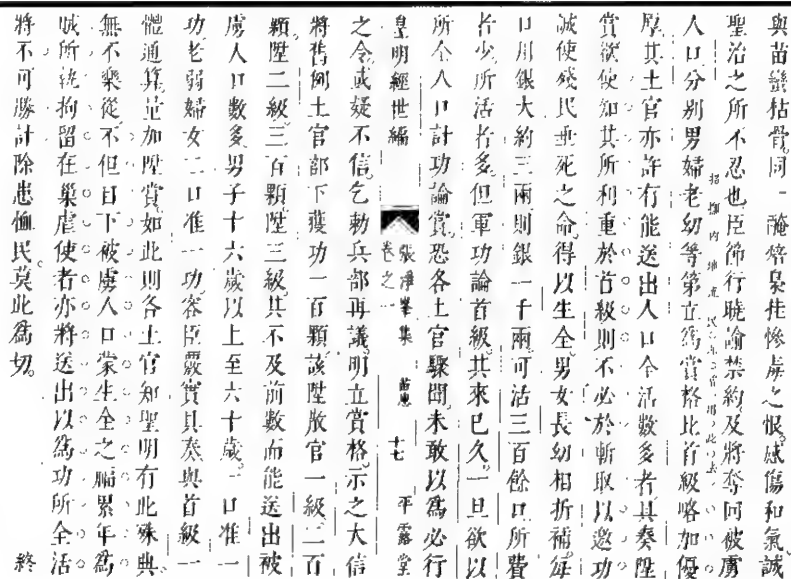 與苗蠻枯骨同一醃焙梟挂慘虐之恨感傷和氣誠
聖治之所不忍也臣節行曉諭禁約及將奪回被虜
招撫內地流民
人口分別男婦老幼等第立爲賞格比首級略加優
厚其土官亦許有能送出人口全活數多者具奏陞
賞欲使知其所利重於首級則不必於斬取以邀功
誠使殘民垂死之命得以生全男女長幼相折補每
口用銀大約三兩則銀一千兩可活三百餘口所費
者少所活者多但軍功論首級其來已久一旦欲以
所全人口計功論賞恐各土官驟聞未敢以爲必行
皇明經世編
張淨峯集
卷之一
苗患
十七
平露堂
之令或疑不信乞勅兵部再議明立賞格示之大信
將舊例土官部下獲功一百顆該陞散官一級二百
顆陞二級三百顆陞三級其不及前數而能送出被
虜人口數多男子十六歲以上至六十歲一口准一
功老弱婦女二口准一功容臣覈實具奏與首級一
體通算量加陞賞如此則各土官知聖明有此殊典
無不樂從不但目下被虜人口蒙生全之賜累年爲
賊所統拘留在巢虐使者亦將送出以爲功所全活
將不可勝計除患恤民莫此爲切
終